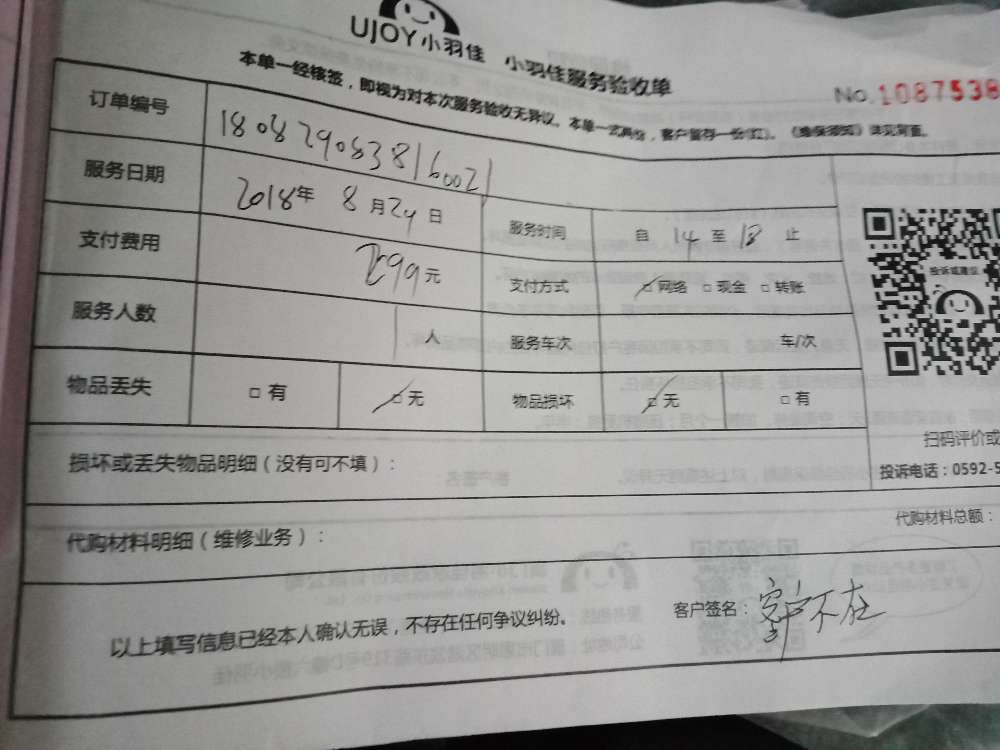 UJOY小羽佳 小羽佳服务验收单
No.1087538
本单一经核签，即视为对本次服务验收无异议。本单一式两份，客户留存一份(红)。《维保须知》详见背面。
订单编号 1808290838160021
服务日期 2018年 8月29日 服务时间 自 14 至 18 止
支付费用 299元 支付方式 □网络 □现金 □转账
服务人数 1人 服务车次 车/次
物品丢失 □有 □无 物品损坏 □无 □有
投诉或建议
扫码评价或
投诉电话：0592-5
损坏或丢失物品明细（没有可不填）：
代购材料明细（维修业务）：
代购材料总额：
以上填写信息已经本人确认无误，不存在任何争议纠纷。
客户签名：客户不在